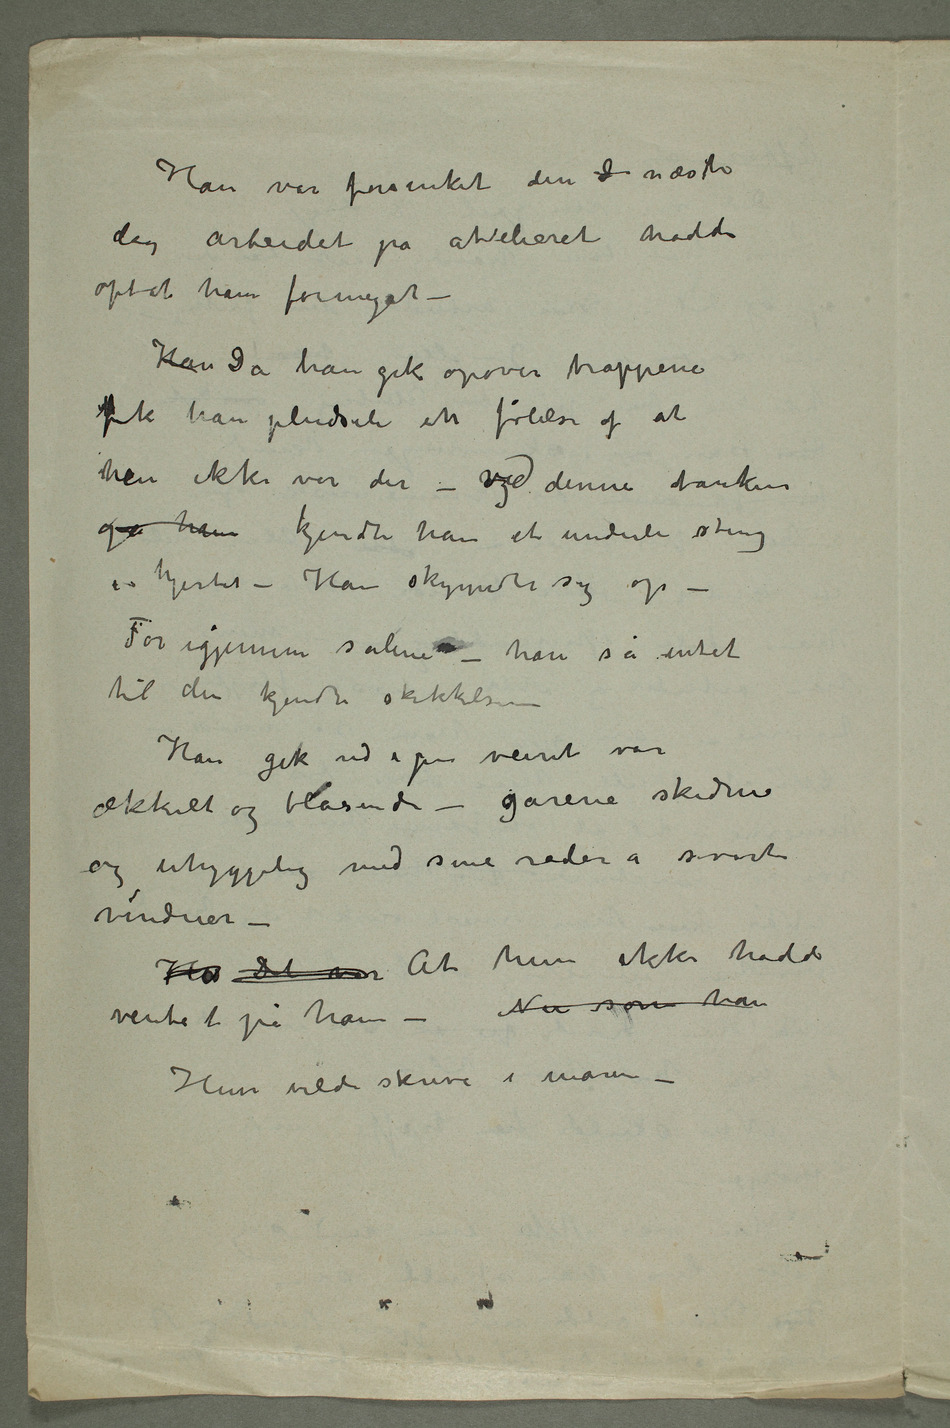 Han var forsinket den d næste
dag arbeidet på attelieret hadde
optat ham formeget –
Han Da han gik opover trappene
fik han pludseli en følelse af at
hun ikke var der – ved denne tanken
ga ham kjendte han et underli sting
i hjertet – Han skyndte sig op –
For igjennem salene – han så intet
til den kjendte skikkelsen –
Han gik ud igjen veiret var
ækkelt og blåsende – gårene skidne
og uhyggelig med sine rader a svarte
vinduer –
Ha Det var At hun ikke hadde
ventet på ham – Nu som han
Hun vilde skrive i maren –